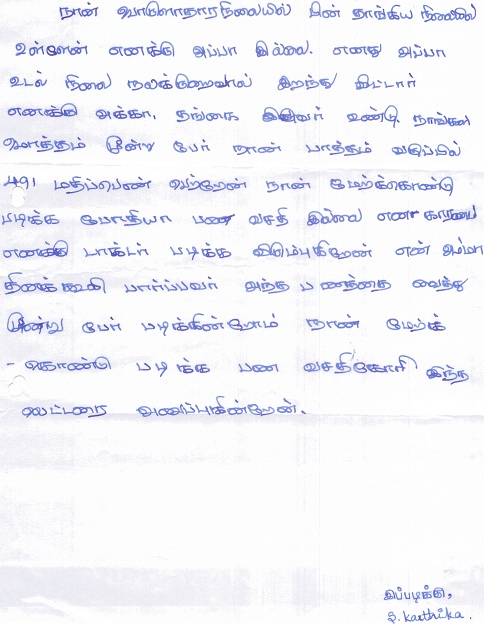 நான் பொருளாதாரநிலையில் பின் தாங்கிய நிலையில்
உள்ளேன் எனக்கு அப்பா இல்லை. எனது அப்பா
உடல் நிலை நலக்குறைவால் இறந்து விட்டார்
எனக்கு அக்கா, தங்கை இருவர் உண்டு. நாங்கள்
மொத்தம் மூன்று பேர் நான் பாத்தம் வகுப்பில்
491 மதிப்பெண் பெற்றேன் நான் மேற்கொண்டு
படிக்க போதியா பண வசதி இல்லை என
எனக்கு டாக்டர் படிக்க விரும்புகிறேன் என் அம்மா
தினக்கூலி பார்ப்பவர் அந்த பணத்தை வைத்து
மூன்று பேர் படிக்கின்றோம் நான் மேற்க்
- கொண்டு படிக்க பண வசதிகோரி இந்த
லெட்டரை அனுப்புகின்றேன்.
இப்படிக்கு,
S. Karthika.